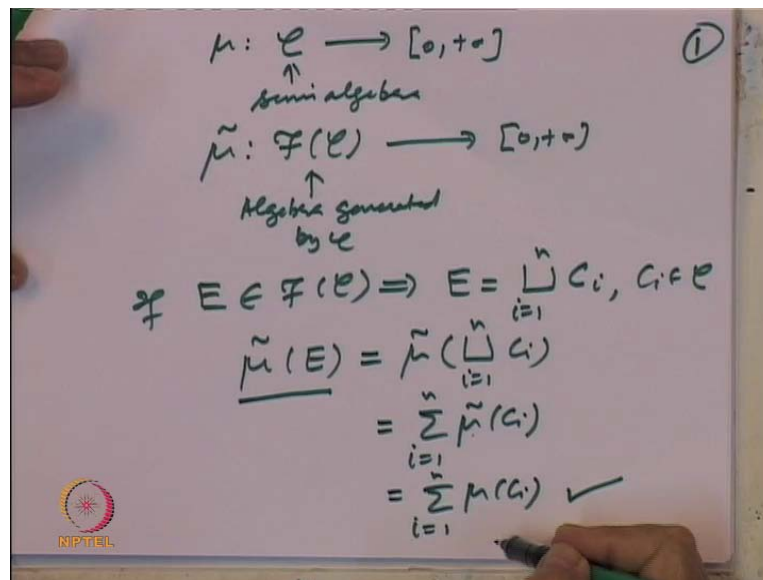 μ: 𝒞 ⟶ [0, +∞] ①
↑
semi algebra
μ̃: ℱ(𝒞) ⟶ [0, +∞]
↑
Algebra generated
by 𝒞
If E ∈ ℱ(𝒞) ⇒ E = ⨆_{i=1}^{n} C_i, C_i ∈ 𝒞
μ̃(E) = μ̃(⨆_{i=1}^{n} C_i)
= ∑_{i=1}^{n} μ̃(C_i)
= ∑_{i=1}^{n} μ(C_i) ✓
NPTEL